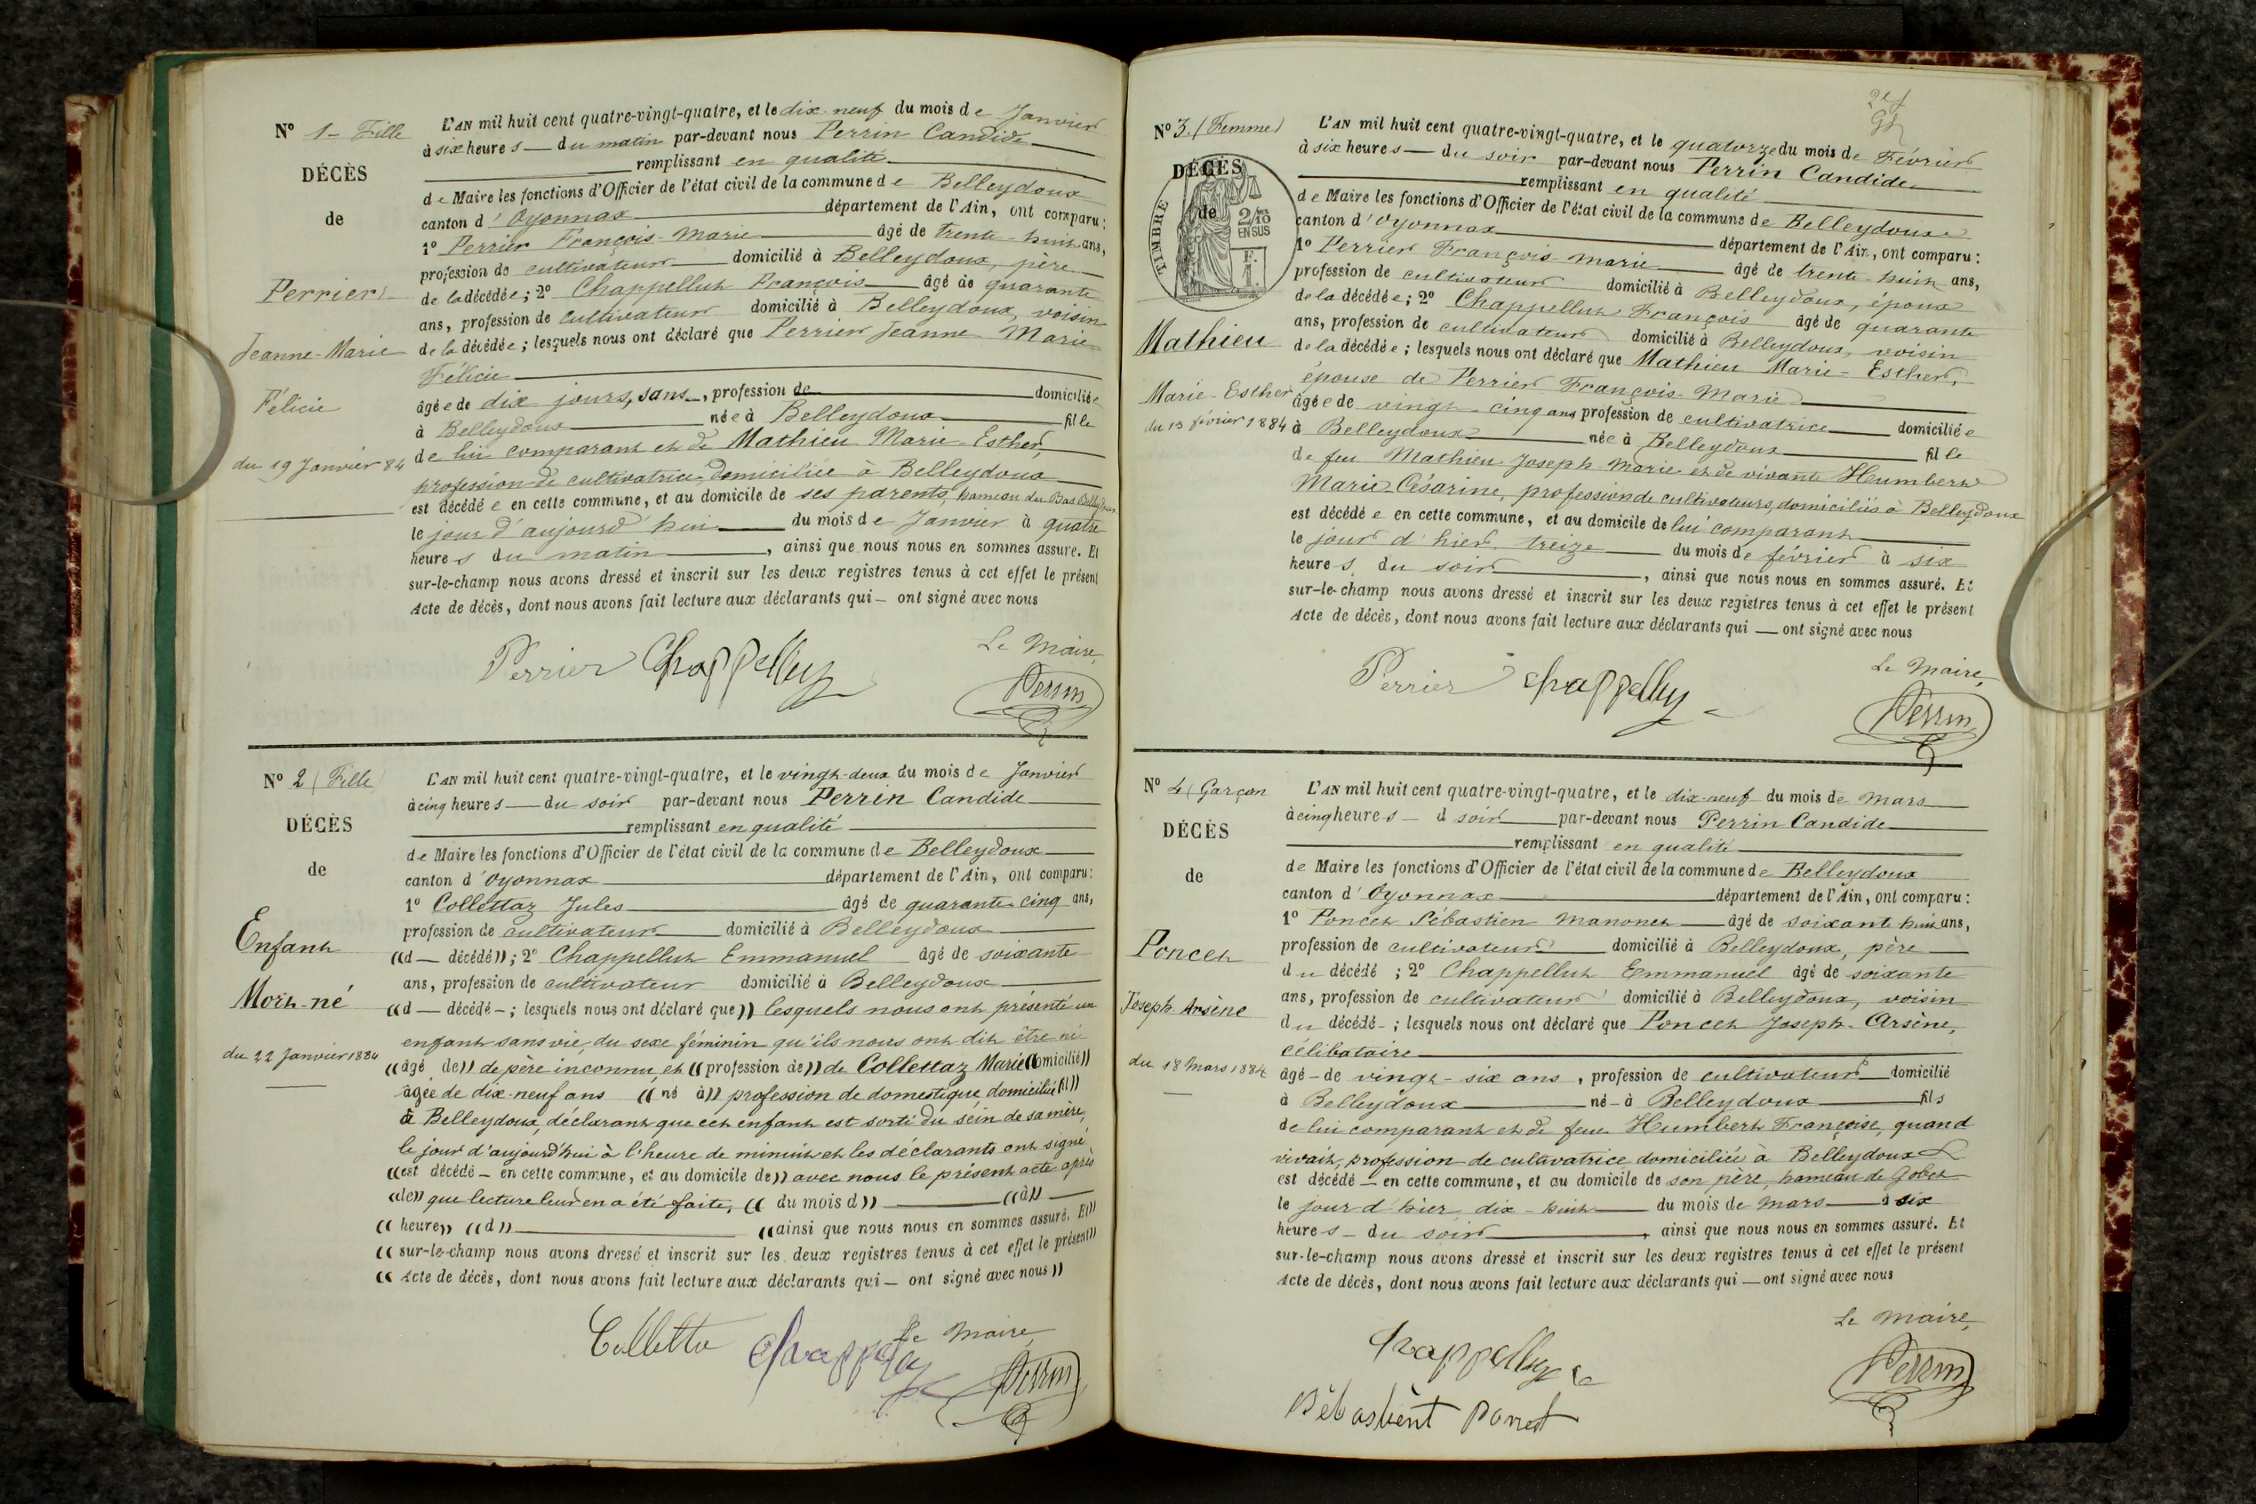 N° 1 - Fille
DÉCÈS
de
Perrier
Jeanne-Marie
Félicie
du 19 Janvier 84
L'AN mil huit cent quatre-vingt-quatre, et le dix-neuf du mois de Janvier
à six heures du matin par-devant nous Perrin Candide
remplissant en qualité
de Maire les fonctions d'Officier de l'état civil de la commune de Belleydoux
canton d'Oyonnax département de l'Ain, ont comparu :
1° Perrier François-Marie âgé de trente-huit ans,
profession de cultivateur domicilié à Belleydoux, père
de la décédée ; 2° Chappelluz François âgé de quarante
ans, profession de cultivateur domicilié à Belleydoux, voisin
de la décédée ; lesquels nous ont déclaré que Perrier Jeanne Marie
Félicie
âgée de dix jours, sans, profession de domiciliée
à Belleydoux née à Belleydoux fille
de lui comparant et de Mathieu Marie-Esther,
profession de cultivatrice, domiciliée à Belleydoux
est décédée en cette commune, et au domicile de ses parents, hameau du Bas Belleydoux
le jour d'aujourd'hui du mois de Janvier à quatre
heures du matin, ainsi que nous nous en sommes assuré. Et
sur-le-champ nous avons dressé et inscrit sur les deux registres tenus à cet effet le présent
Acte de décès, dont nous avons fait lecture aux déclarants qui — ont signé avec nous
Le Maire,
Perrier Chappelluz Perrin
N° 2 (Fille)
DÉCÈS
de
Enfant
Mort-né
du 22 Janvier 1884
L'AN mil huit cent quatre-vingt-quatre, et le vingt-deux du mois de Janvier
à cinq heures du soir par-devant nous Perrin Candide
remplissant en qualité
de Maire les fonctions d'Officier de l'état civil de la commune de Belleydoux
canton d'Oyonnax département de l'Ain, ont comparu :
1° Collettaz Jules âgé de quarante-cinq ans,
profession de cultivateur domicilié à Belleydoux
((d — décédé)) ; 2° Chappelluz Emmanuel âgé de soixante
ans, profession de cultivateur domicilié à Belleydoux
((d — décédé - ; lesquels nous ont déclaré que)) lesquels nous ont présenté un
enfant sans vie, du sexe féminin qu'ils nous ont dit être né
((âgé de)) de père inconnu, et ((profession de)) de Collettaz Marie ((domicilié))
âgée de dix-neuf ans ((né à)) profession de domestique, domiciliée ((fil))
à Belleydoux, déclarant que cet enfant est sorti du sein de sa mère,
le jour d'aujourd'hui à l'heure de minuit et les déclarants ont signé
((est décédé - en cette commune, et au domicile de)) avec nous le présent acte après
((le)) que lecture leur en a été faite, ((du mois d)) ((à))
((heure)) ((d)) ((ainsi que nous nous en sommes assuré. Et))
((sur-le-champ nous avons dressé et inscrit sur les deux registres tenus à cet effet le présent))
((Acte de décès, dont nous avons fait lecture aux déclarants qui — ont signé avec nous))
Le Maire,
Colletta Chappelluz Perrin
N° 3 (Femme)
DÉCÈS
de
TIMBRE
2/10 EN SUS
Mathieu
Marie-Esther
du 13 février 1884
L'AN mil huit cent quatre-vingt-quatre, et le quatorze du mois de Février
à six heures du soir par-devant nous Perrin Candide
remplissant en qualité
de Maire les fonctions d'Officier de l'état civil de la commune de Belleydoux
canton d'Oyonnax département de l'Ain, ont comparu :
1° Perrier François-Marie âgé de trente-huit ans,
profession de cultivateur domicilié à Belleydoux, époux
de la décédée ; 2° Chappelluz François âgé de quarante
ans, profession de cultivateur domicilié à Belleydoux, voisin
de la décédée ; lesquels nous ont déclaré que Mathieu Marie-Esther,
épouse de Perrier François-Marie
âgée de vingt-cinq ans profession de cultivatrice domiciliée
à Belleydoux née à Belleydoux fille
de feu Mathieu Joseph Marie et de vivante Heumbert
Marie Césarine, profession de cultivateurs, domiciliés à Belleydoux
est décédée en cette commune, et au domicile de lui comparant
le jour d'hier treize du mois de février à six
heures du soir, ainsi que nous nous en sommes assuré. Et
sur-le-champ nous avons dressé et inscrit sur les deux registres tenus à cet effet le présent
Acte de décès, dont nous avons fait lecture aux déclarants qui — ont signé avec nous
Le Maire,
Perrier Chappelluz Perrin
N° 4 (Garçon
DÉCÈS
de
Poncet
Joseph Arsène
du 18 Mars 1884
L'AN mil huit cent quatre-vingt-quatre, et le dix-neuf du mois de Mars
à cinq heures - d soir par-devant nous Perrin Candide
remplissant en qualité
de Maire les fonctions d'Officier de l'état civil de la commune de Belleydoux
canton d'Oyonnax département de l'Ain, ont comparu :
1° Poncet Sébastien Manonet âgé de soixante huit ans,
profession de cultivateur domicilié à Belleydoux, père
du décédé ; 2° Chappelluz Emmanuel âgé de soixante
ans, profession de cultivateur domicilié à Belleydoux, voisin
du décédé - ; lesquels nous ont déclaré que Poncet Joseph-Arsène,
célibataire
âgé - de vingt-six ans, profession de cultivateur domicilié
à Belleydoux né - à Belleydoux fils
de lui comparant et de feue Humbert Françoise, quand
vivait, profession de cultivatrice domiciliée à Belleydoux
est décédé - en cette commune, et au domicile de son père, hameau de Gobet
le jour d'hier dix-huit du mois de Mars à six
heures - du soir, ainsi que nous nous en sommes assuré. Et
sur-le-champ nous avons dressé et inscrit sur les deux registres tenus à cet effet le présent
Acte de décès, dont nous avons fait lecture aux déclarants qui — ont signé avec nous
Le Maire,
Chappelluz Perrin
Sébastient Poncet